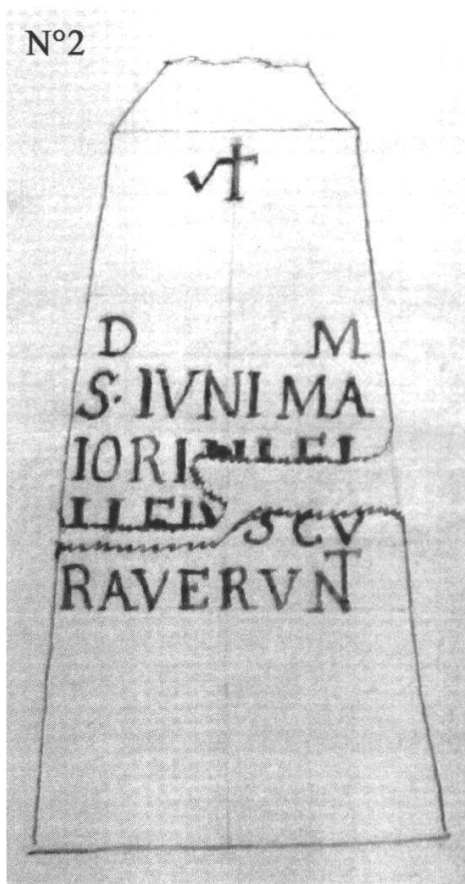 N°2
D M
S·IVNI MA
IORI
SCV
RAVERVNT